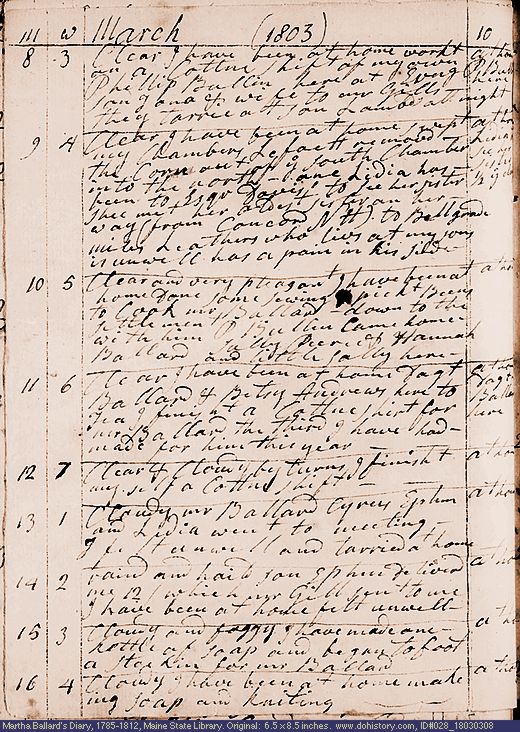 m w March (1803) 10
8 3 Clear I have been at home workt
on a Cottne shift of my own
Phillip Bullin here at Evng
son Jona & wife to mr Gills
they tarried at son Lambds at night
9 4 Clear I have been at home swept
my Chambers Lefaett removd
the Corn out of South Chamber
into the north. Lidia has
been to Esqr Davis' to see her sister
shee met her oldest sister on her
way from Concord N H) to Bellgrade
mr Leathers who lives at my sons
is unwell has a pain in his side
10 5 Clear and very pleasant I have been at
home Done some sewing pickt Beens
to Cook mr Ballard down to the
settlement P Bullin Came home
with him Sally Peirce & Hannah
Ballard and little Sally here
11 6 Clear I have been at home Dagt
Ballard & Betsy Andrews here to
Tea I finisht a Cottne shirt for
mr Ballard the third I have had
made for him this year
12 7 Clear & Clowdy by turns I finisht
my self a Cottne shift
13 1 Clowdy mr Ballard Cyrus Ephm
and Lidia went to meeting
I feel unwell and tarried at home
14 2 raind and haild son Ephm delivrd
me 12/ which mr Gill sent to me
I have been at home felt unwell
15 3 Clowdy and foggy I have made one
kettle of soap and begun to foot
a stockin for mr Ballard
16 4 Clowdy I have been at home make
my soap and kniting
Martha Ballard's Diary, 1785-1812, Maine State Library. Original: 6.5 x 8.5 inches. www.dohistory.com, ID#028_18030308